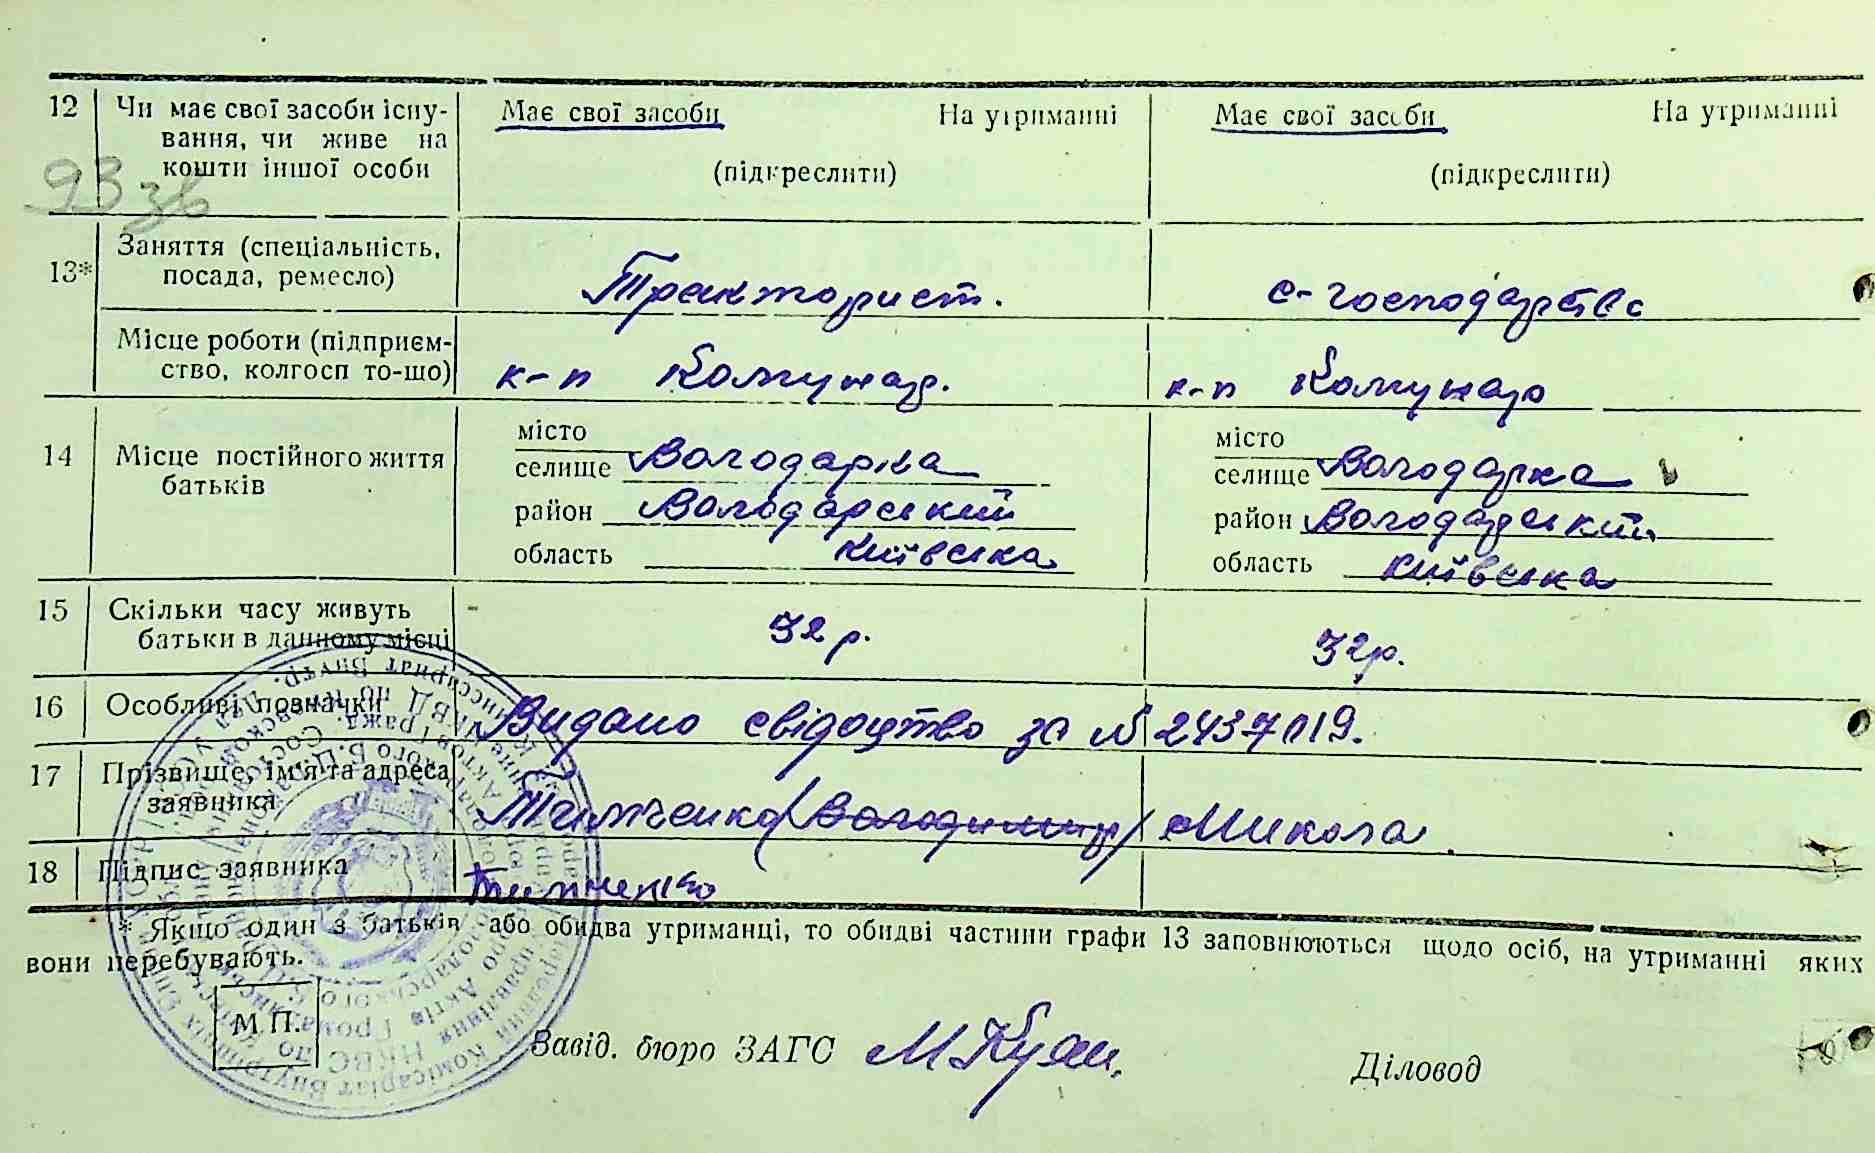 12 Чи має свої засоби існу- Має свої засоби На утриманні Має свої засоби На утриманні
вання, чи живе на
кошти іншої особи (підкреслити) (підкреслити)
93 зв
13* Заняття (спеціальність,
посада, ремесло) Тракторист. с-господарство
Місце роботи (підприєм-
ство, колгосп то-що) к-п Комунар. к-п Комунар
14 Місце постійного життя
батьків
місто місто
селище Володарка селище Володарка
район Володарський район Володарський
область Київська область Київська
15 Скільки часу живуть
батьки в данному місці 32 р. 32 р.
16 Особливі позначки Видано свідоцтво за № 2437019.
17 Прізвище, ім'я та адреса
заявника Тимченко (Володимир) Микола.
18 Підпис заявника Тимченко
* Якщо один з батьків або обидва утриманці, то обидві частини графи 13 заповнюються щодо осіб, на утриманні яких
вони перебувають.
М.П.
Завід. бюро ЗАГС
Діловод